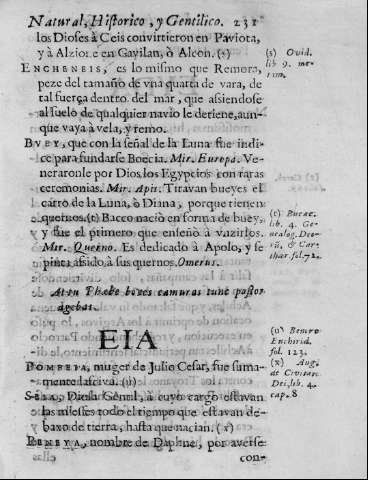 Natural, Historico, y Gentilico. 231
los Dioses à Ceis convirtieron en Paviota,
y à Alzione en Gavilan, ò Alcon. (s)
(s) Ovid.
lib 9. me-
ENCHENEIS, es lo mismo que Remora,
peze del tamaño de vna quarta de vara, de
tal fuerça dentro del mar, que assiendose
al suelo de qualquier navio le detiene, aun-
que vaya à vela, y remo.
BVEY, que con la señal de la Luna fue indi-
ce para fundarse Boecia. Mir. Europa. Ve-
neraronle por Dios los Egypcios con raras
ceremonias. Mir. Apis. Tiravan bueyes el
carro de la Luna, ò Diana, porque tienen
quernos. (t) Bacco naciò en forma de buey,
y fue el primero que enseñò à vnzirlos.
Mir. Querno. Es dedicado à Apolo, y se
pinta assido à sus quernos. Omerus.
lib. 4. Ge-
& Car-
thar. fol. 72.
Phœbe boves camuras pastor
agebat.
EIA
POMPEYA, muger de Julio Cesar, fue suma-
mente lasciva. (u)
(u)
Enchirid.
fol. 123.
Diosa Gentil, à cuyo cargo estavan
las miesses todo el tiempo que estavan de-
baxo de tierra, hasta que nacian. (x)
(x) Aug.
de Civitat.
Dei, lib. 4.
cap. 8
PENEYA, nombre de Daphne, por averse
con-